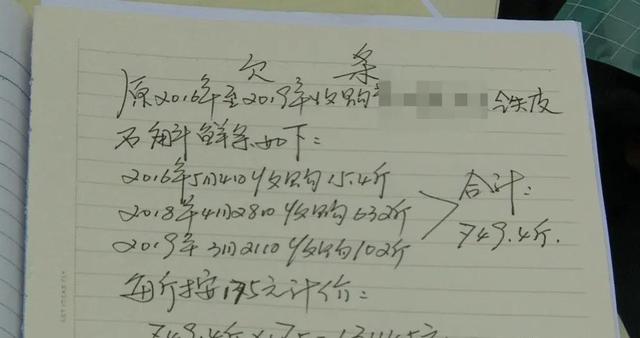 欠条
原2016年至2019年收购 铁皮
石斛鲜条如下:
2016年5月4日收购15.4斤
2018年4月28日收购632斤
2019年3月21日收购102斤
合计:
749.4斤.
每斤按175元计价:
749.4斤×175=131145元